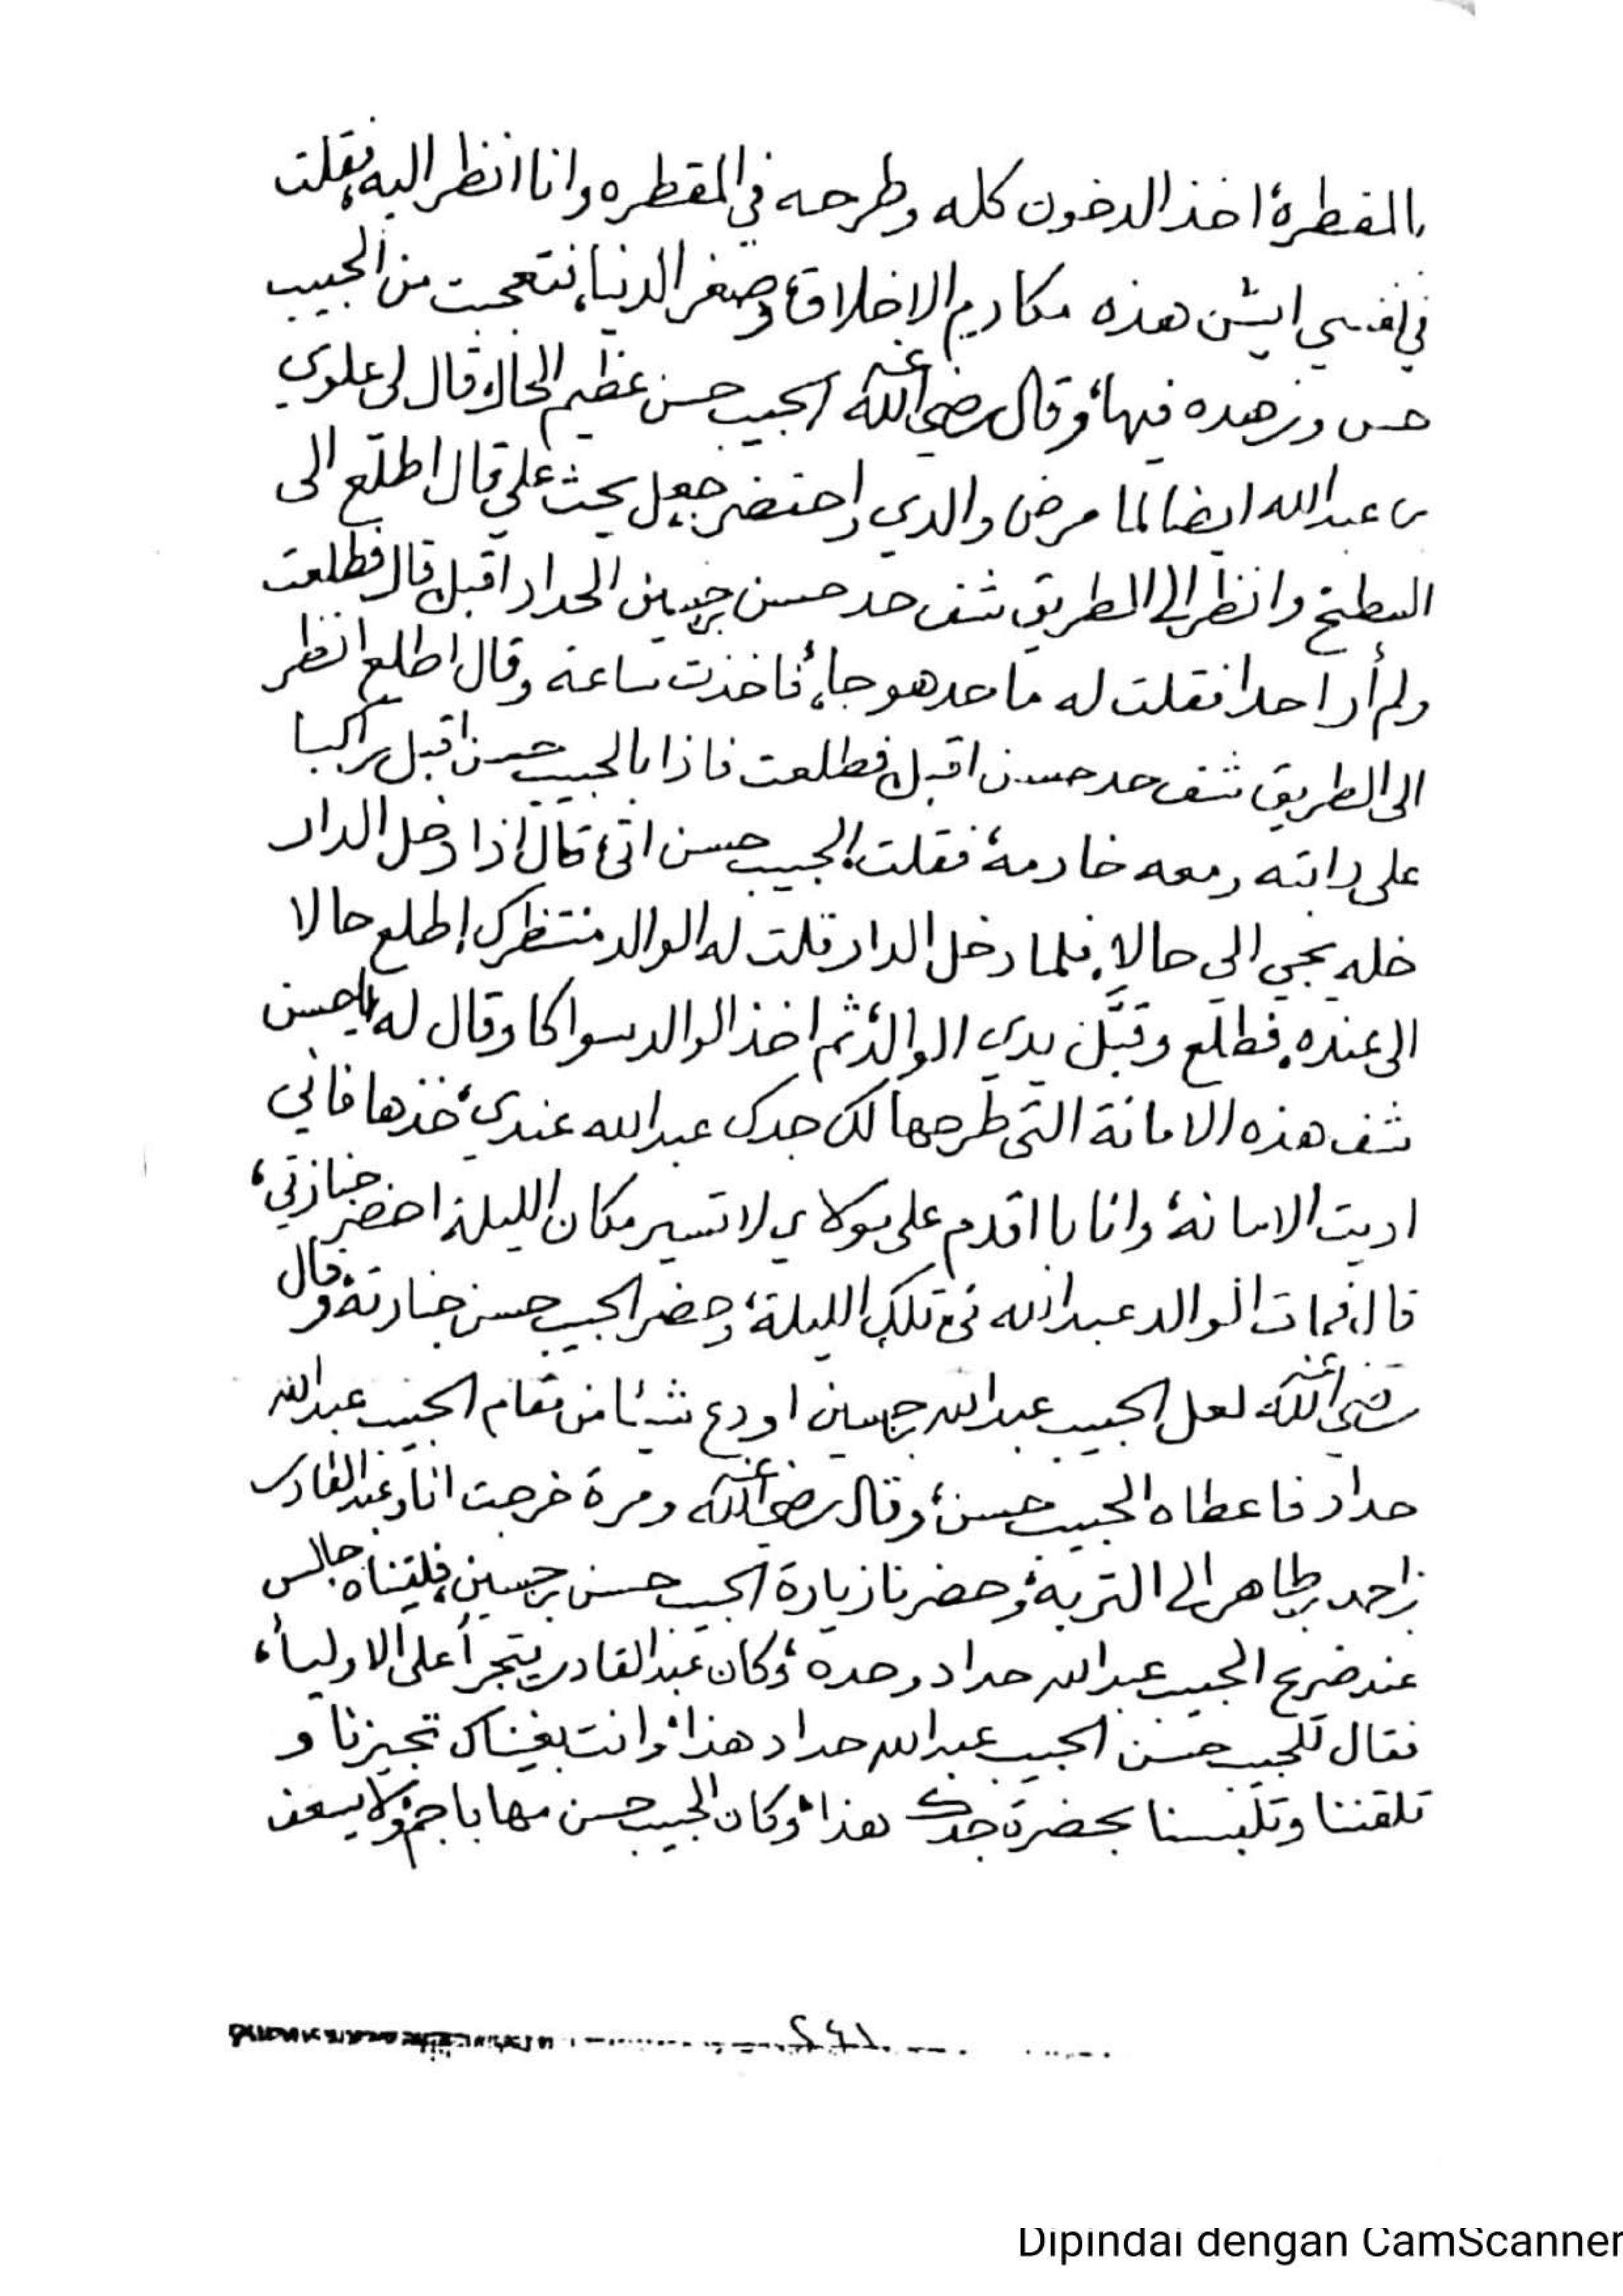 بالمقطرة، اخذ الدخون كله وطرحه في المقطره وانا انظر اليه، فقلت
في نفسي ايش هذه مكاريم الاخلاق، وصغر الدنيا، فتعجبت من الحبيب
حسن وزهده فيها، وقال رضي الله عنه الحبيب حسن عظيم الحال، قال لي علوي
بن عبدالله ايضا لما مرض والدي واحتضر جعل يحث علي قال اطلع الى
السطح وانظر الى الطريق شف حد حسن بن حسين الحداد اقبل، قال فطلعت
ولم أر احدا فقلت له ما حد هو جاء، فاخذت ساعة وقال اطلع انظر
الى الطريق شف حد حسن اقبل، فطلعت فاذا بالحبيب حسن اقبل راكبا
على دابته ومعه خادمه، فقلت، الحبيب حسن اتى، قال اذا دخل الدار
خله يجي الي حالا. فلما دخل الدار قلت له الوالد منتظرك إطلع حالا
الى عنده. فطلع وقبَّل يدي الوالد، ثم اخذ الوالد سواكا وقال له ياحسن
شف هذه الامانة التي طرحها لك جدك عبدالله عندي، خذها فاني
اديت الامانة، وانا با اقدم على مولاي لا تسير مكان الليلة احضر جنازتي،
قال، فمات الوالد عبدالله في تلك الليلة، وحضر الحبيب حسن جنازته، وقال
رضي الله عنه لعل الحبيب عبدالله بن حسين اودع شيئا من مقام الحبيب عبدالله
حداد فاعطاه الحبيب حسن، وقال رضي الله عنه ومرة خرجت انا وعبدالقادر
بن احمد بن طاهر الى التربة، وحضرنا زيارة الحبيب حسن بن حسين، فلقيناه جالس
عند ضريح الحبيب عبدالله حداد وحده، وكان عبدالقادر يتجرأ على الاولياء،
فقال للحبيب حسن الحبيب عبدالله حداد هذا، وانت بغيناك تجيزنا و
تلقننا وتلبسنا بحضرة جدك هذا، وكان الحبيب حسن مهابا جم، ولا يسعف